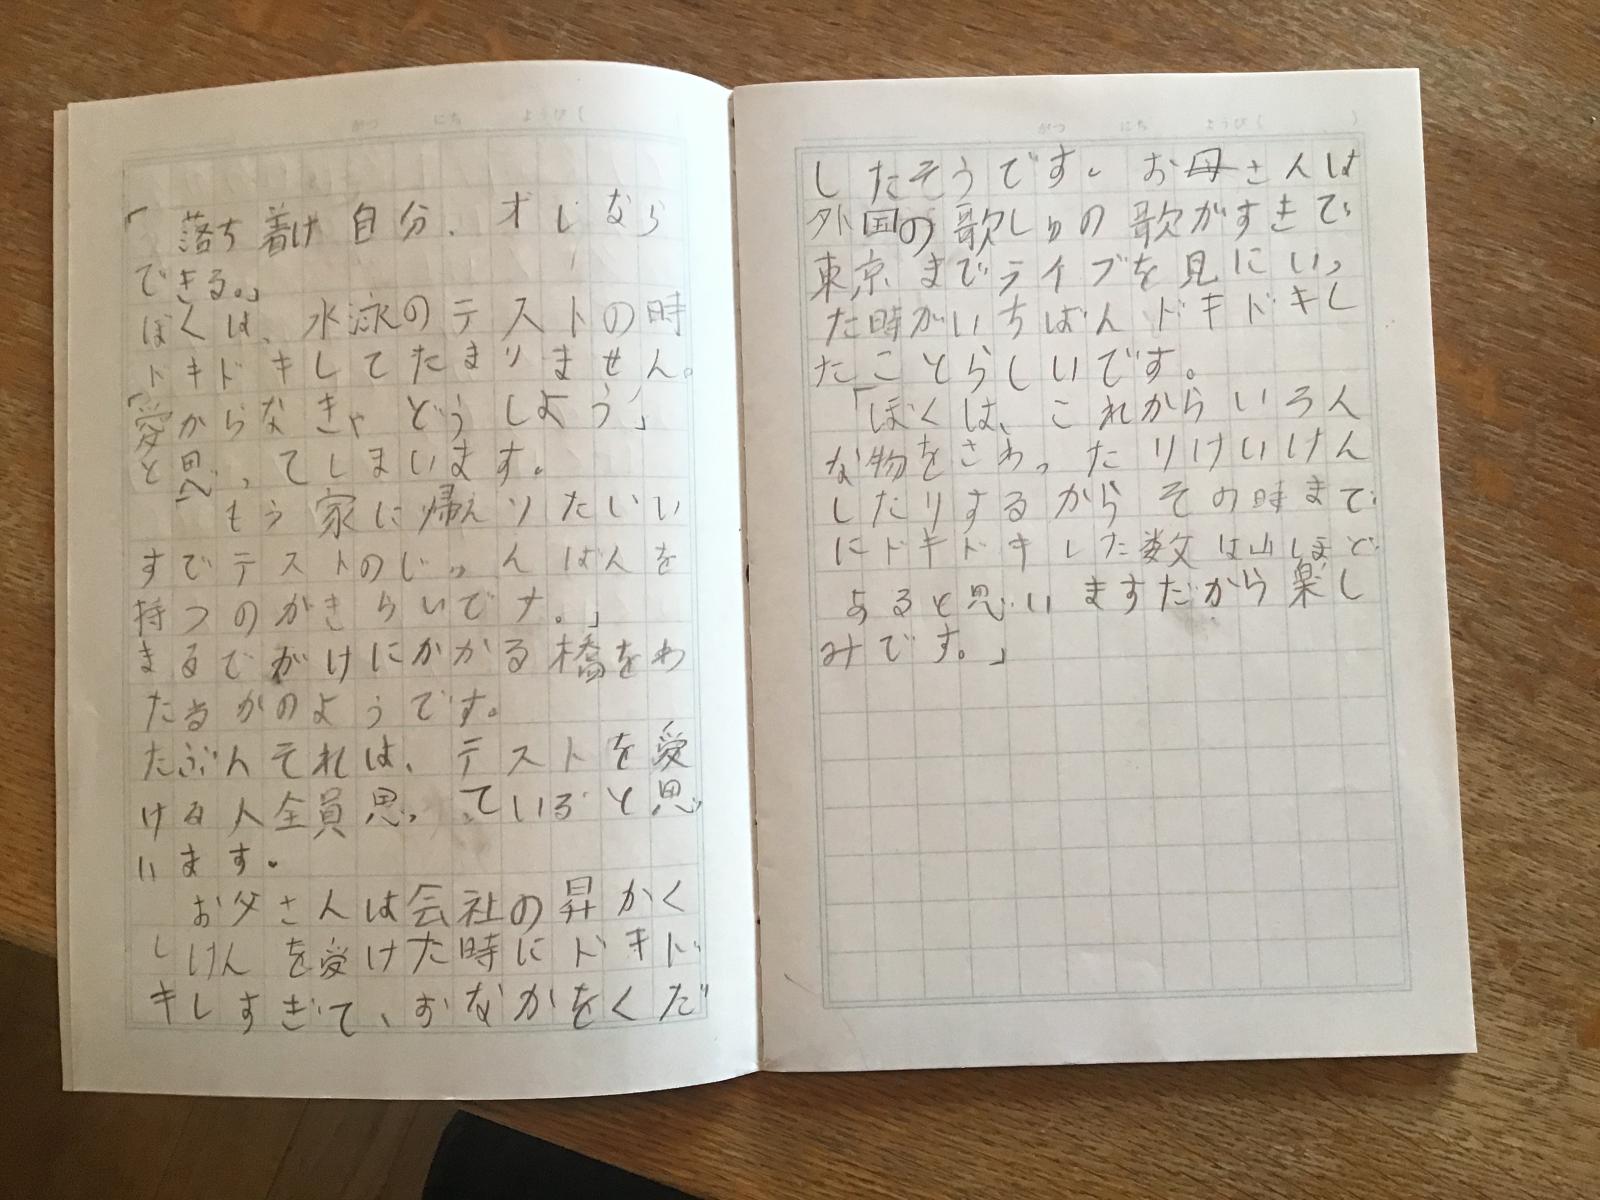 がつ にち ようび( )
「落ち着け自分、オレなら
できる。」
ぼくは、水泳のテストの時
ドキドキしてたまりません。
「受からなきゃどうしよう」
と思ってしまいます。
「もう家に帰えりたいい
すでテストのじゅんばんを
持つのがきらいです。」
まるでがけにかかる橋をわ
たるかのようです。
たぶんそれは、テストを受
ける人全員思っていると思
います。
お父さんは会社の昇かく
しけんを受けた時にドキド
キしすぎて、おなかをくだ
がつ にち ようび( )
したそうです。お母さんは
外国の歌しゅの歌がすきで
東京までライブを見にいっ
た時がいちばんドキドキし
たことらしいです。
「ぼくは、これからいろん
な物をさわったりけいけん
したりするからその時まで
にドキドキした数は山ほど
あると思いますだから楽し
みです。」